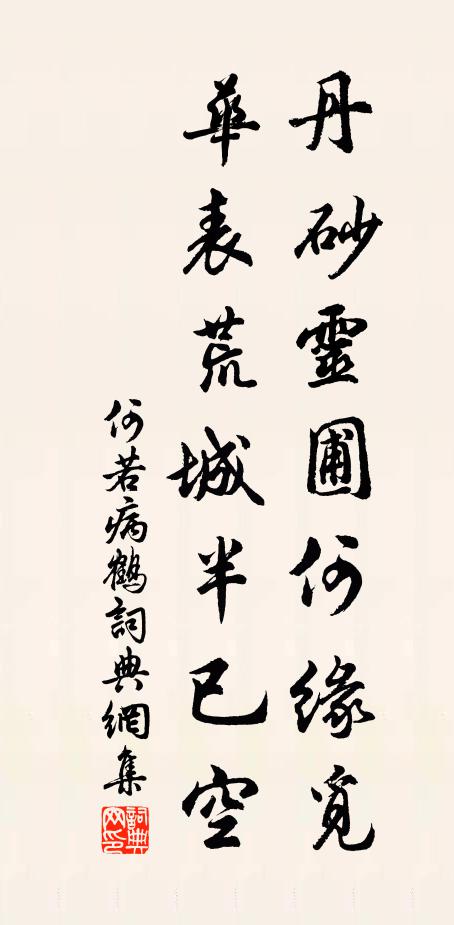 丹砂靈圃何緣覓
華表荒城半已空
何若病鶴詞典網集
詞典網印